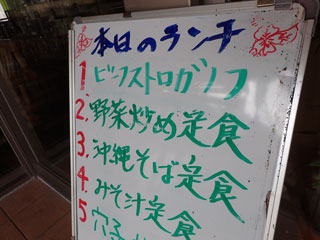 本日のランチ
1 ビーフストロガノフ
2. 野菜炒め定食
3. 沖縄そば定食
4. みそ汁定食
5